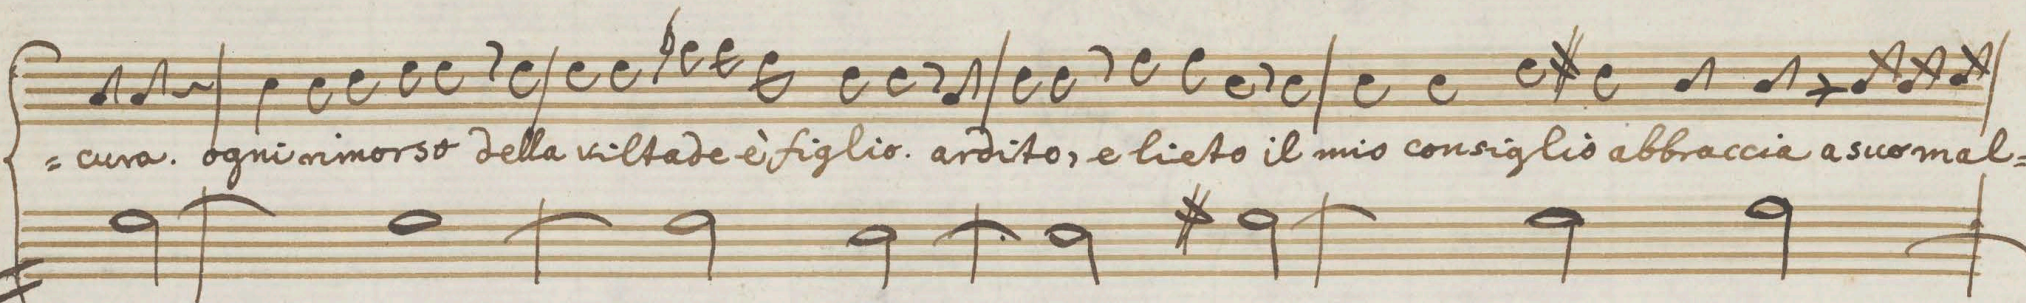 =cura. ogni rimorso della viltade è figlio. ardito, e lieto il mio consiglio abbraccia a suo mal=